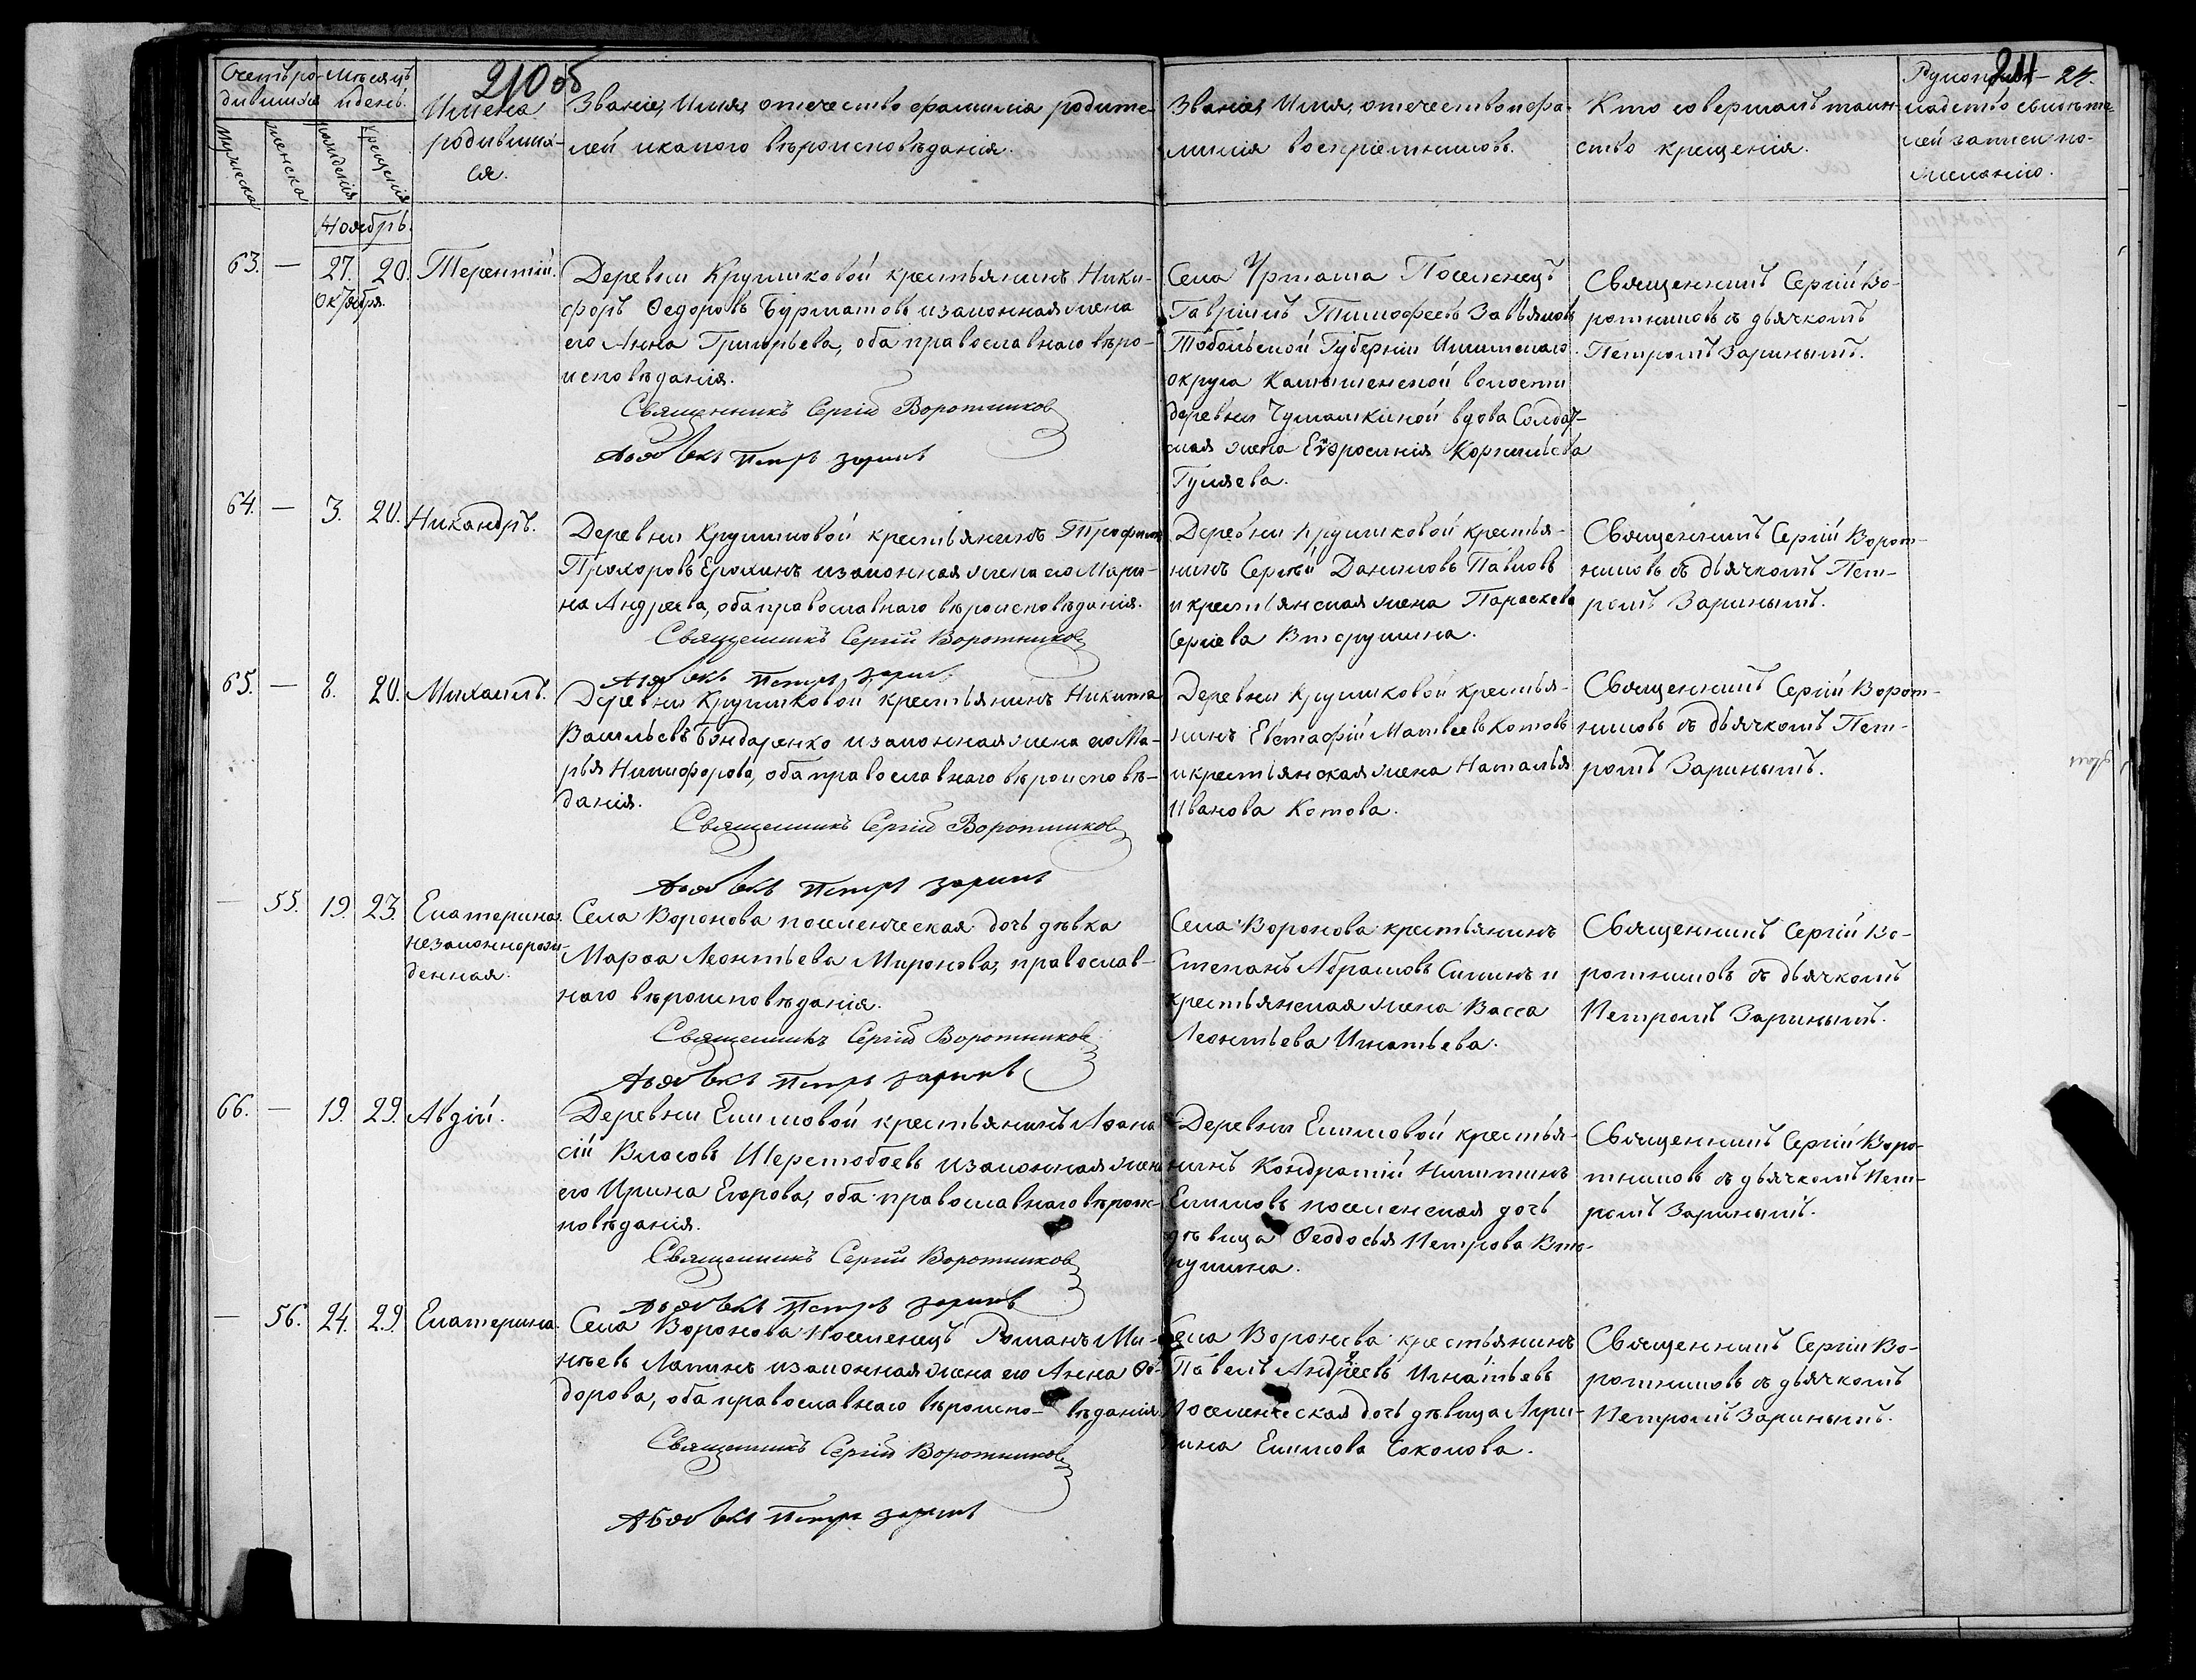 210 об
211
24.
Счетъ ро-
дившихся
Мѣсяцъ
и день.
Имена
родивши-
ся.
Званіе, Имя, отечество фамилія родите-
лей и какого вѣроисповѣданія.
Званіе, Имя, отечество и фа-
милія воспріемниковъ.
Кто совершалъ таин-
ство крещенія.
Рукоприк-
ладство свидѣте-
лей записи по-
желанію.
Мужеска
женска
рожденія
крещенія
Ноябрь.
63. — 27. 20. Терентій.
Октября.
Деревни Крутиковой крестьянинъ Ники-
форъ Ѳедоровъ Бурматовъ и законная жена
его Анна Григорьева, оба православнаго вѣро-
исповѣданія.
Священникъ Сергій Воротников
Дьячокъ Петръ Заринъ
Села Уртама Поселенецъ
Гавріилъ Тимофеевъ Завьяловъ
Тобольской Губерніи Ишимскаго
округа Камышенской волости
деревни Чумашкиной вдова Солдат-
ская жена Евфросинія Корнильева
Гуляева.
Священникъ Сергій Во-
ротниковъ съ дьячкомъ
Петромъ Заринымъ.
64. — 3. 20. Никандръ.
Деревни Крутиковой крестьянинъ Трофимъ
Прохоровъ Ерохинъ и законная жена его Мари-
на Андреева, оба православнаго вѣроисповѣданія.
Священникъ Сергій Воротников
Дьячокъ Петръ Заринъ
Деревни Крутиковой крестья-
нинъ Сергѣй Даниловъ Павловъ
и крестьянская жена Параскева
Сергіева Вторушина.
Священникъ Сергій Ворот-
никовъ съ дьячкомъ Пет-
ромъ Заринымъ.
65. — 8. 20. Михаилъ.
Деревни Крутиковой крестьянинъ Никита
Васильевъ Бондаренко и законная жена его Ма-
рья Никифорова, оба православнаго вѣроисповѣ-
данія.
Священникъ Сергій Воротников
Дьячокъ Петръ Заринъ
Деревни Крутиковой крестья-
нинъ Евстафій Матвеевъ Котовъ
и крестьянская жена Наталья
Иванова Котова.
Священникъ Сергій Ворот-
никовъ съ дьячкомъ Пет-
ромъ Заринымъ.
— 55. 19. 23. Екатерина
незаконнорож-
денная.
Села Воронова поселенческая дочь дѣвка
Марѳа Леонтьева Миронова, православ-
наго вѣроисповѣданія.
Священникъ Сергій Воротников
Дьячокъ Петръ Заринъ
Села Воронова крестьянинъ
Степанъ Абрамовъ Силинъ и
крестьянская жена Васса
Леонтьева Игнатьева.
Священникъ Сергій Во-
ротниковъ съ дьячкомъ
Петромъ Заринымъ.
66. — 19. 29. Авдій.
Деревни Екимовой крестьянинъ Аѳана
сій Власовъ Шерстобоевъ и законная жена
его Ирина Егорова, оба православнаго вѣроис-
повѣданія.
Священникъ Сергій Воротников
Дьячокъ Петръ Заринъ
Деревни Екимовой крестья-
нинъ Кондратій Никитинъ
Екимовъ поселенская дочь
дѣвица Ѳеодосья Петрова Вто-
рушина.
Священникъ Сергій Воро-
тниковъ съ дьячкомъ Пет-
ромъ Заринымъ.
— 56. 24. 29. Екатерина.
Села Воронова Поселенецъ Романъ Ми-
нѣевъ Лапинъ и законная жена его Анна Ѳе-
дорова, оба православнаго вѣроиспо- вѣданія.
Священникъ Сергій Воротников
Дьячокъ Петръ Заринъ
Села Воронова крестьянинъ
Павелъ Андреевъ Игнатьевъ
Поселенческая дочь дѣвица Агри-
пина Екимова Соколова.
Священникъ Сергій Во-
ротниковъ съ дьячкомъ
Петромъ Заринымъ.